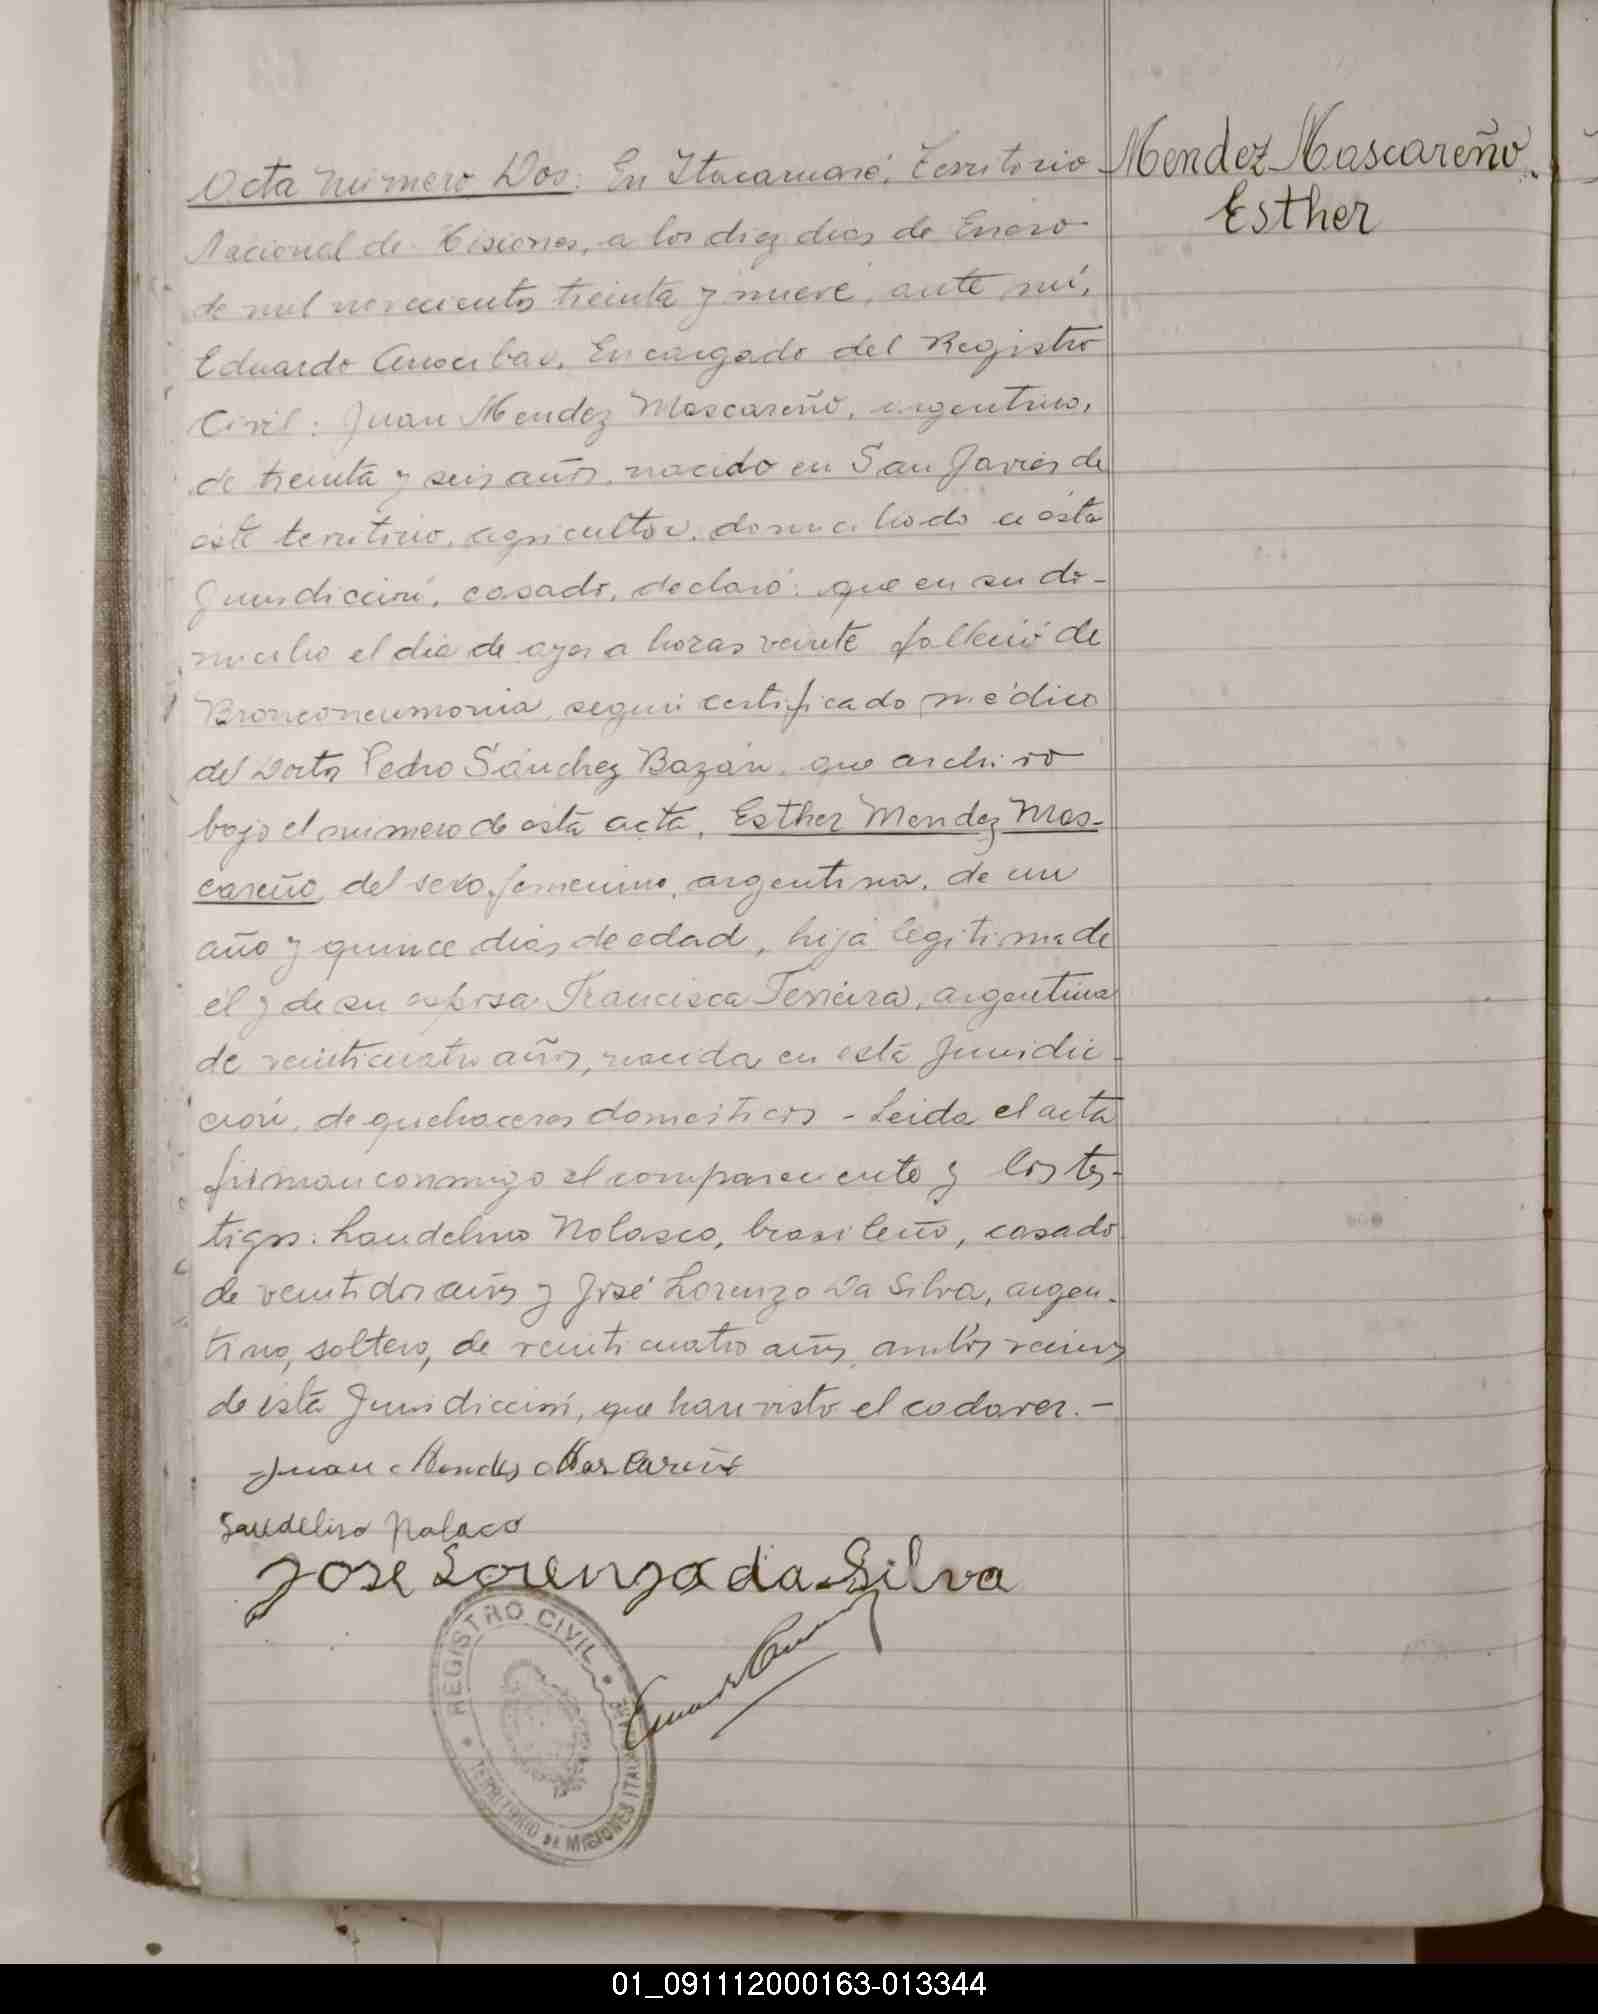 Acta número Dos: En Itacaruaré, Territorio
Nacional de Misiones, a los diez dias de Enero
de mil novecientos treinta y nueve, ante mí,
Eduardo Encargado del Registro
Civil: Juan Mendez Mascareño, argentino,
de treinta y seis años, nacido en San Javier de
este territorio, agricultor, domiciliado en ésta
Jurisdicción, casado, declaró: que en su do-
micilio el dia de ayer a horas veinte falleció de
Bronconeumonia, según certificado médico
del Doctor Pedro Sánchez Bazán, que archivo
bajo el número de ésta acta, Esther Mendez Mas-
careño, del sexo femenino, argentina, de un
año y quince dias de edad, hija legitima de
él y de su esposa Francisca Ferreira, argentina
de veinticuatro años, nacida en ésta Jurisdic-
ción, de quehaceres domésticos - Leida el acta
firman conmigo el compareciente y los tes-
tigos: Laudelino Nolasco, brasileño, casado
de veintidos años y José Lorenzo Da Silva, argen-
tino, soltero, de veinticuatro años, ambos vecinos
de ésta Jurisdicción, que han visto el cadaver. -
Juan Mendez Mascareño
Laudelino Nolaco
Jose Lorenzo da Silva
REGISTRO CIVIL
TERRITORIO DE MISIONES
Mendez Mascareño
Esther
01_091112000163-013344